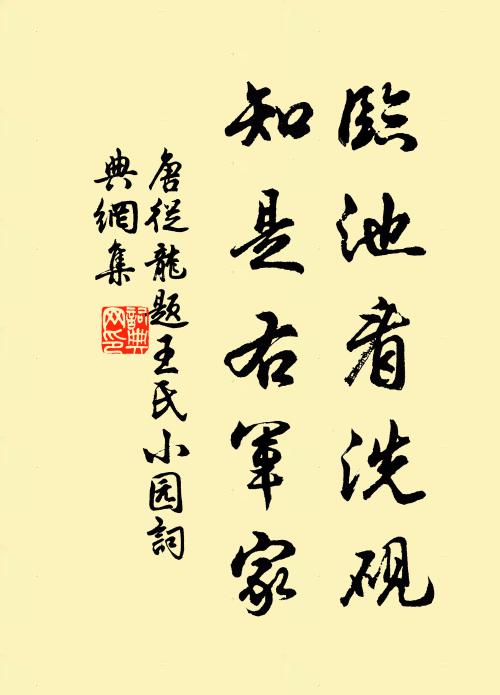 臨池看洗硯
知是右軍家
唐從龍題王氏小园詞
典網集
詞典
网印